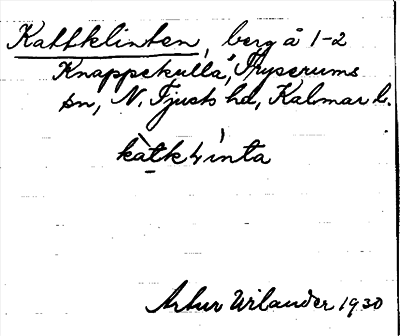 Kattklinten, berg å 1-2
Knappekulla, Tryserums
sn, N. Tjusts hd, Kalmar l.
Artur Wilander 1930